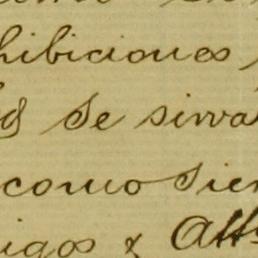 hibiciones
Se sirva
como sien
igos & Atts